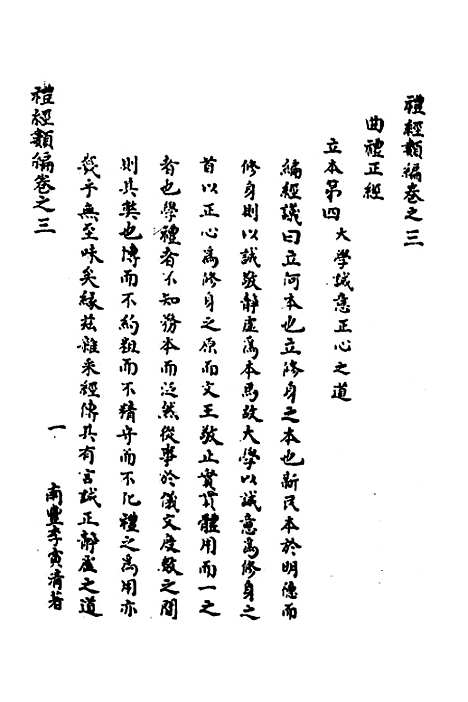 禮經類編卷之三
曲禮正經
立本第四 大學誠意正心之道
編經議曰立何本也立修身之本也新民本於明德而
修身則以誠敬靜虛為本焉故大學以誠意為修身之
首以正心為修身之原而文王敬止實貫體用而一之
者也學禮者不知務本而泛然從事於儀文度數之間
則其弊也博而不約粗而不精守而不化禮之為用亦
幾乎無至味矣緣茲雜采經傳具有言誠正靜虛之道
禮經類編卷之三
一
南豐李寅清著